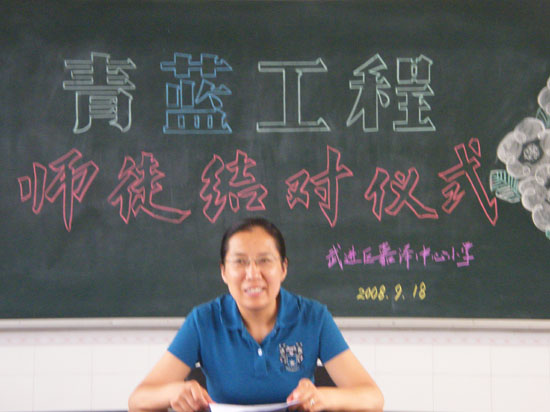 青蓝工程
师徒结对仪式
武进区嘉泽中心小学
2008.9.18